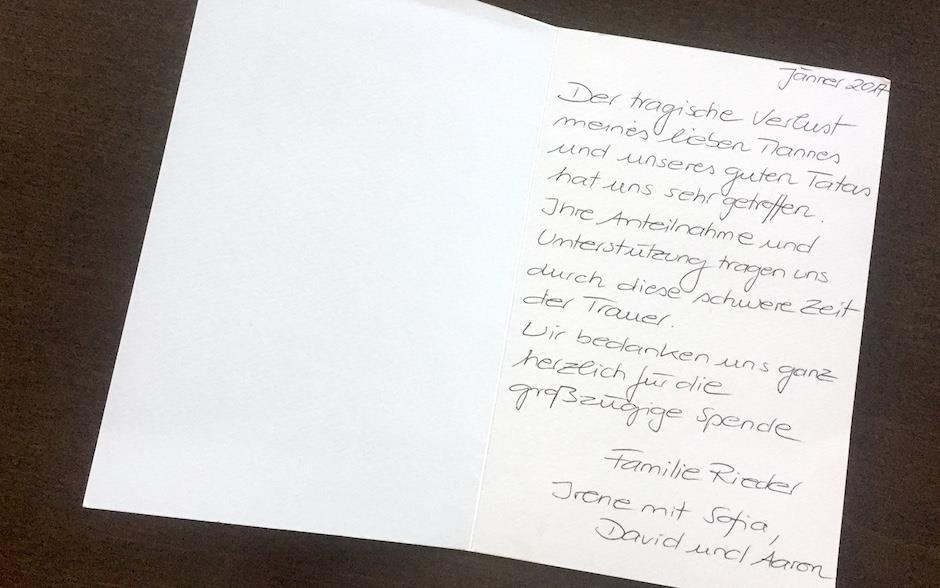 Jänner 2017
Der tragische Verlust
meines lieben Mannes
und unseres guten Tatas
hat uns sehr getroffen.
Ihre Anteilnahme und
Unterstützung tragen uns
durch diese schwere Zeit
der Trauer.
Wir bedanken uns ganz
herzlich für die
großzügige Spende
Familie Rieder
Irene mit Sofia,
David und Aaron